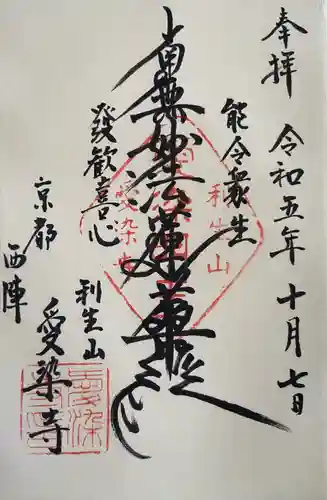 奉拝
令和五年十月七日
能令衆生
南無妙法蓮華経
發歓喜心
利生山
愛染寺
京都
西陣
利生山
愛染寺